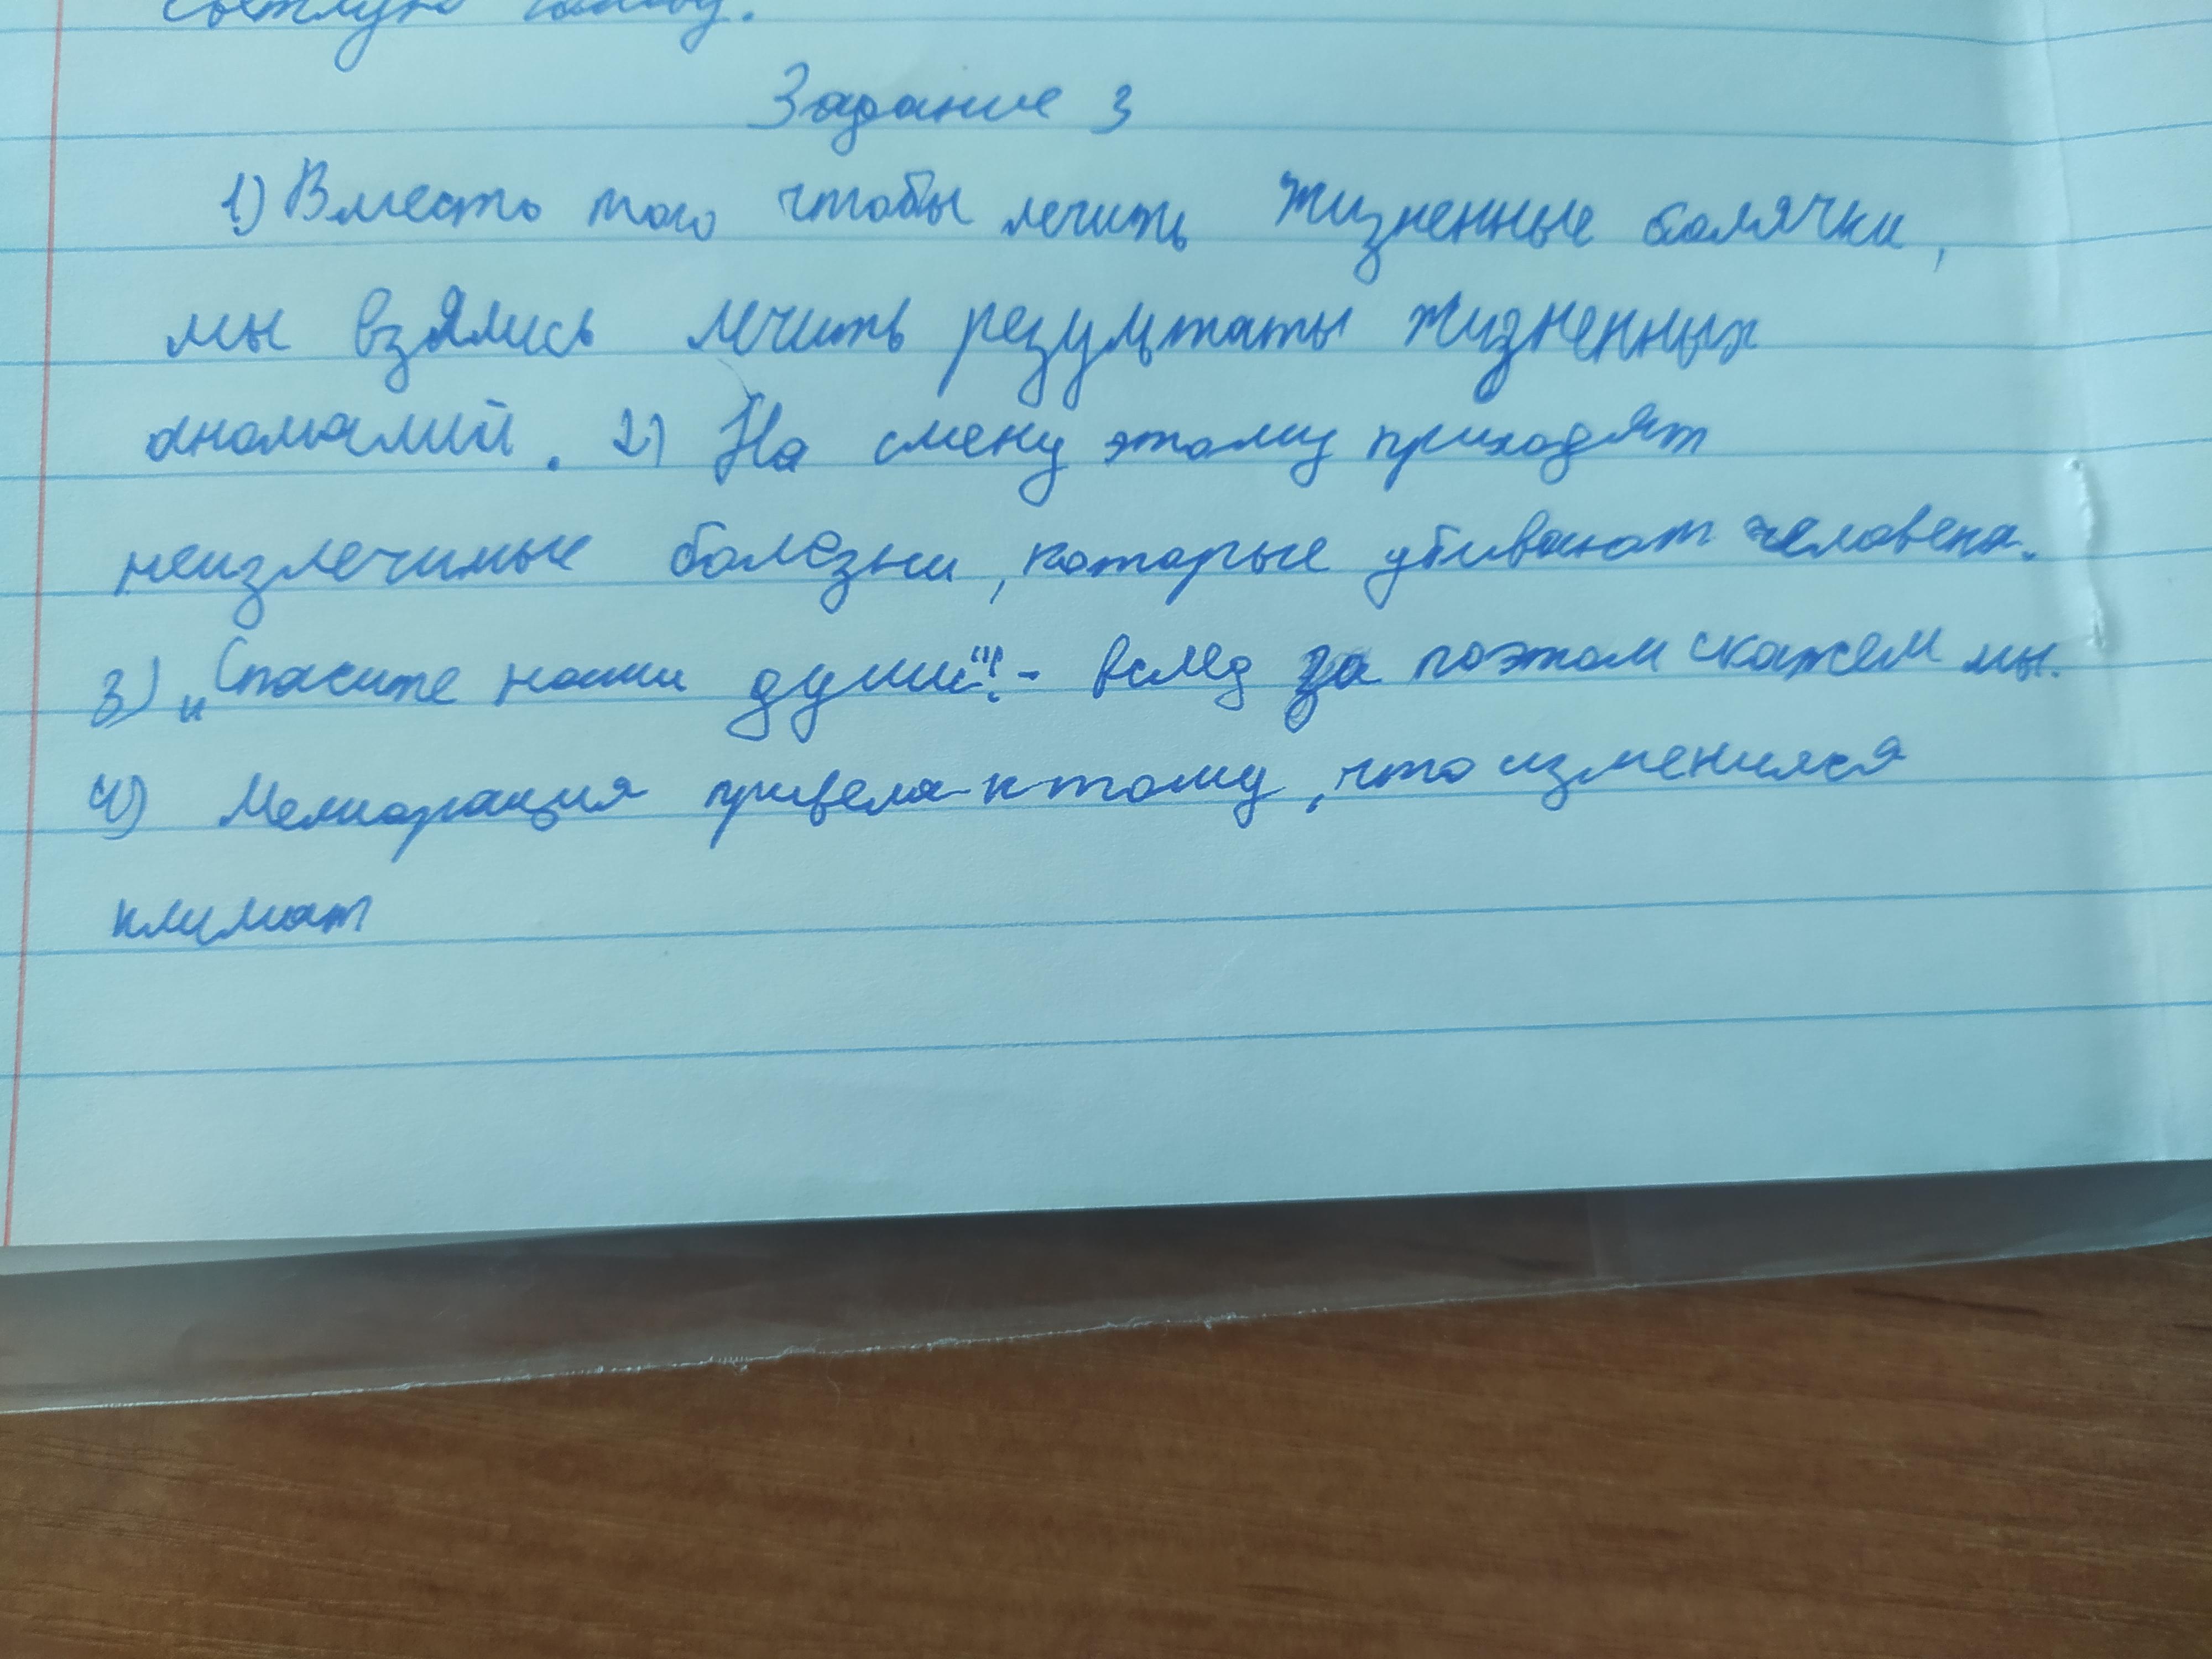 светлую голову.
Задание 3
1) Вместо того чтобы лечить жизненные болячки,
мы взялись лечить результаты жизненных
аномалий. 2) На смену этому приходят
неизлечимые болезни, которые убивают человека.
3) „Спасите наши души"!" - вслед за поэтом скажем мы.
4) Мелиорация привела к тому, что изменился
климат